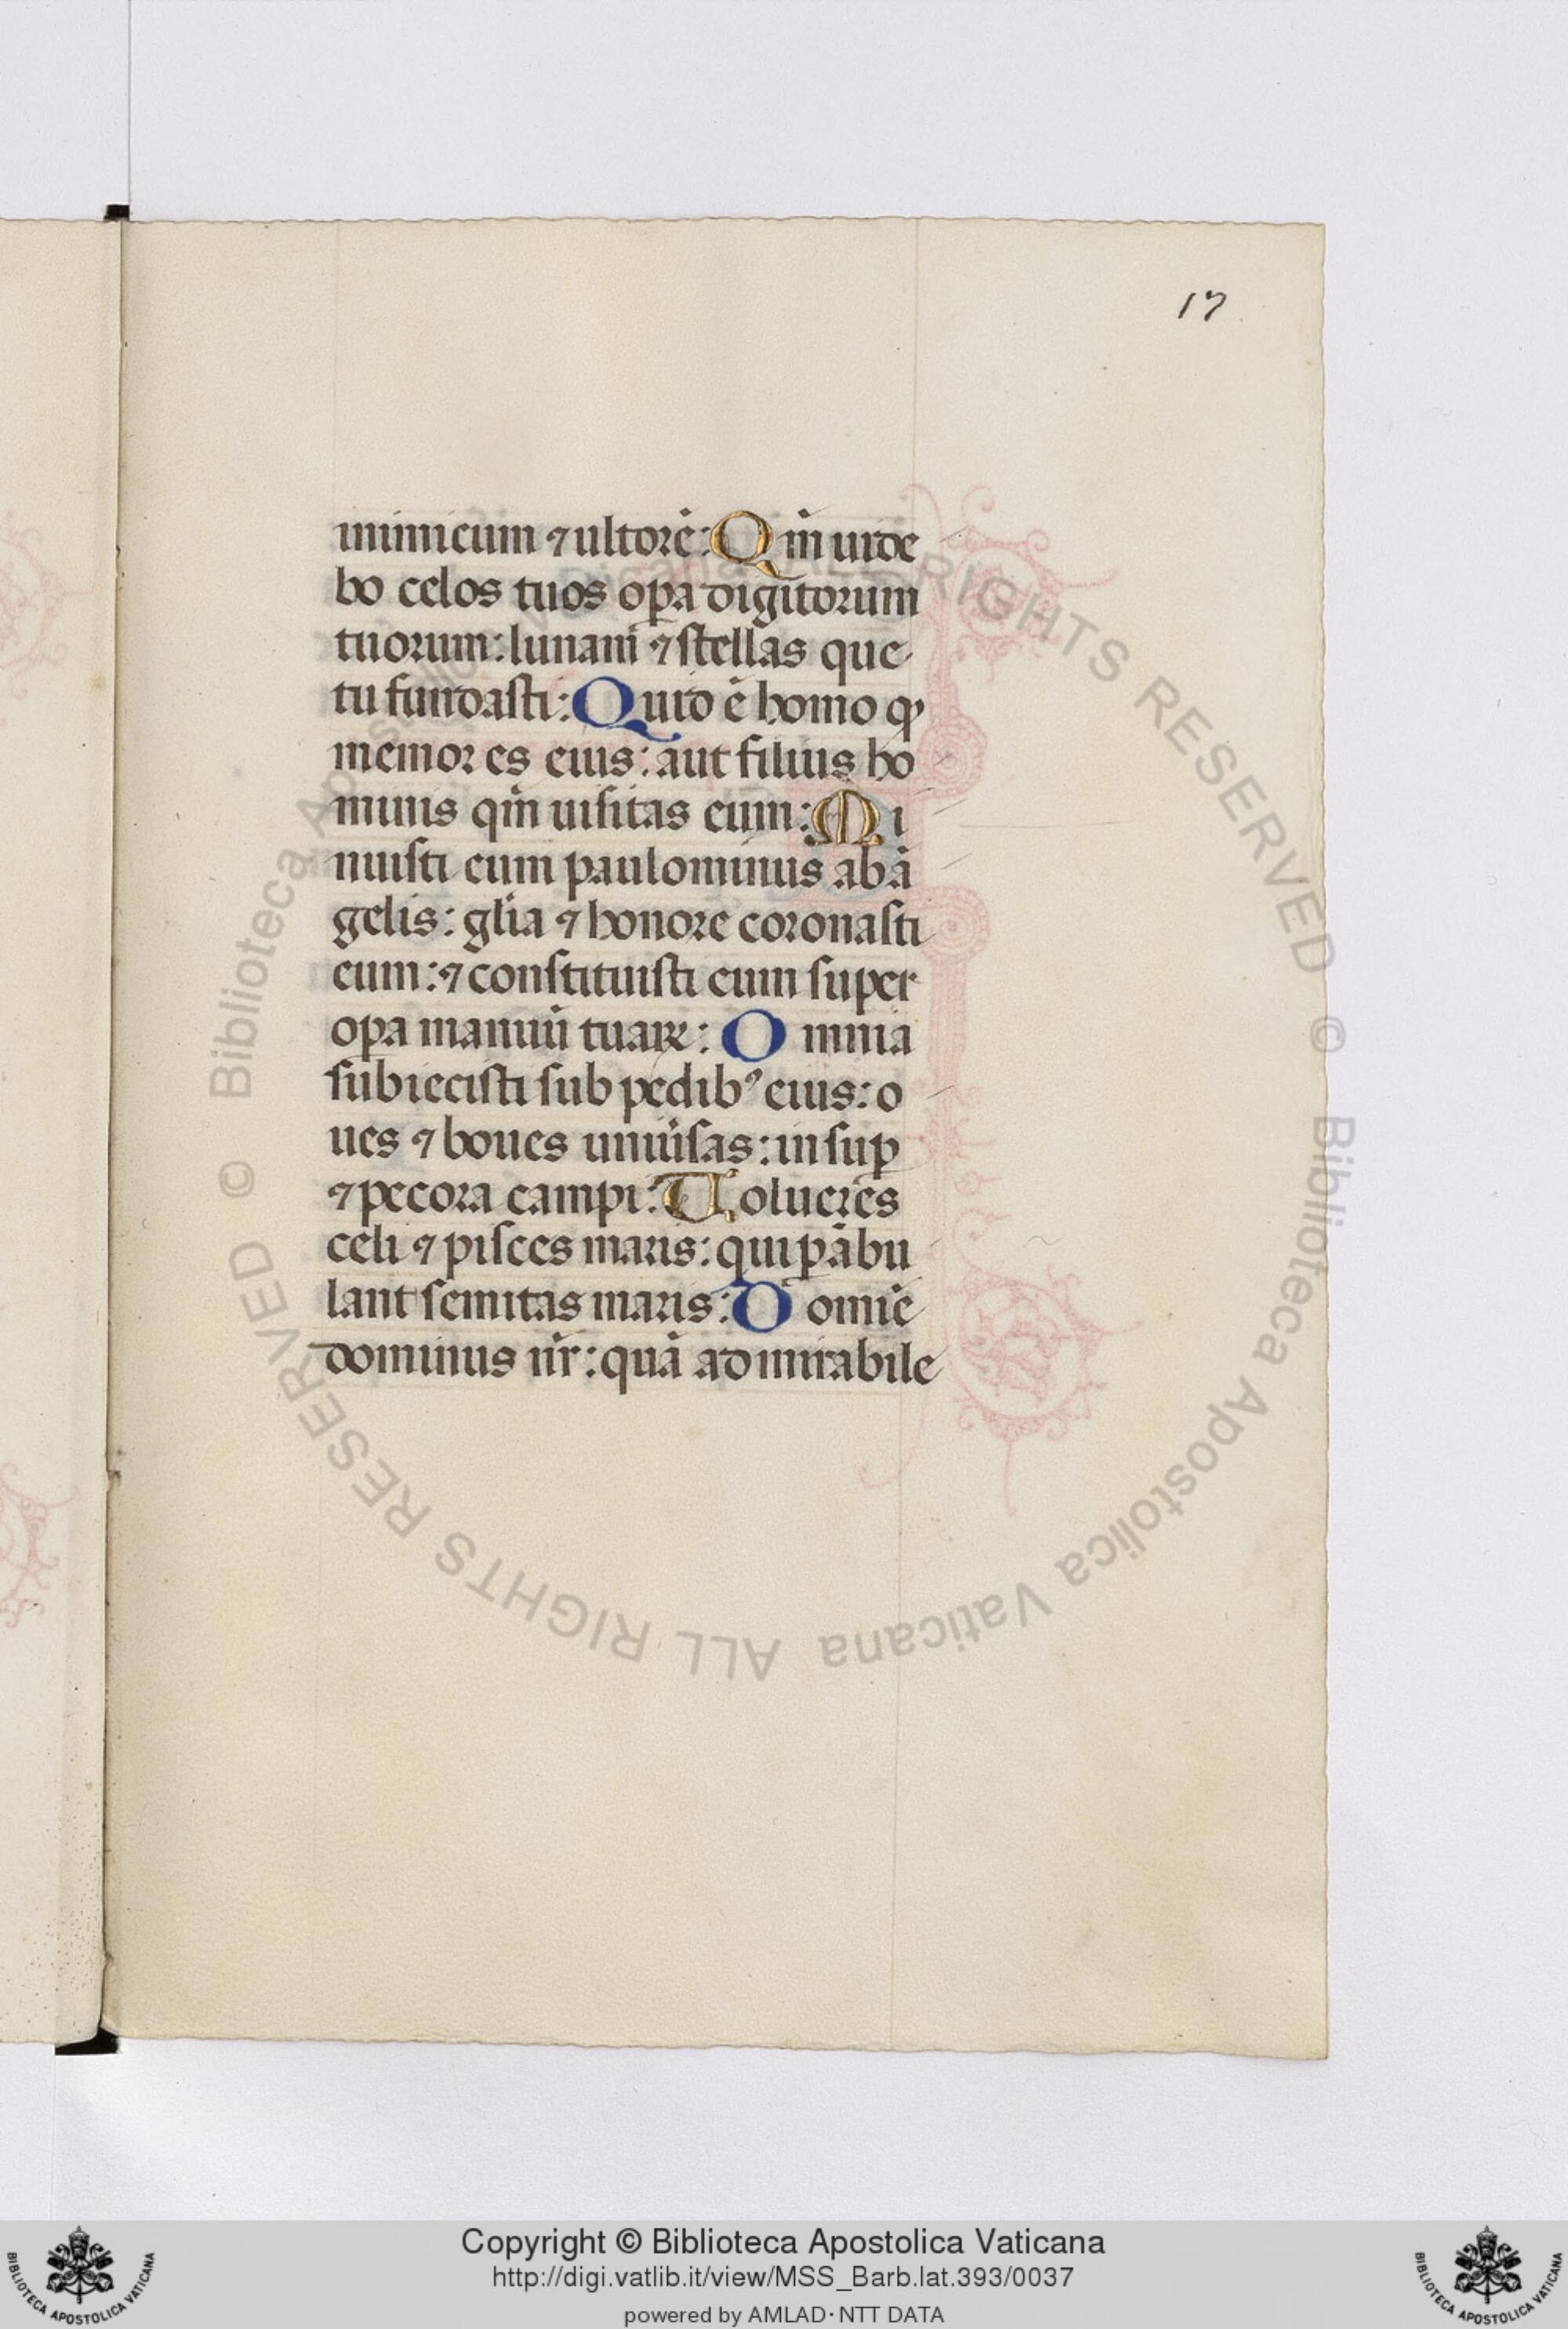 17
inimicum ⁊ ultorē: Qm̄ uide
bo celos tuos oꝑa digitorum
tuorum: lunam ⁊ stellas que
tu fundasti: Quid ē homo ꝙ
memor es eius: aut filius ho
minis qm̄ uisitas eum: Mi
nuisti eum paulominus ab ā
gelis: gl̄ia ⁊ honore coronasti
eum: ⁊ constituisti eum super
oꝑa manuū tuaꝝ: Omnia
subiecisti sub pedibꝰ eius: o
ues ⁊ boues uniu̾sas: insuꝑ
⁊ pecora campi: Uolucres
celi ⁊ pisces maris: qui ꝑābu
lant semitas maris: Domiē
dominus nr̄: quā admirabile
© Biblioteca Apostolica Vaticana ALL RIGHTS RESERVED
© Biblioteca Apostolica Vaticana ALL RIGHTS RESERVED
Copyright © Biblioteca Apostolica Vaticana
http://digi.vatlib.it/view/MSS_Barb.lat.393/0037
powered by AMLAD·NTT DATA
BIBLIOTECA APOSTOLICA VATICANA
BIBLIOTECA APOSTOLICA VATICANA